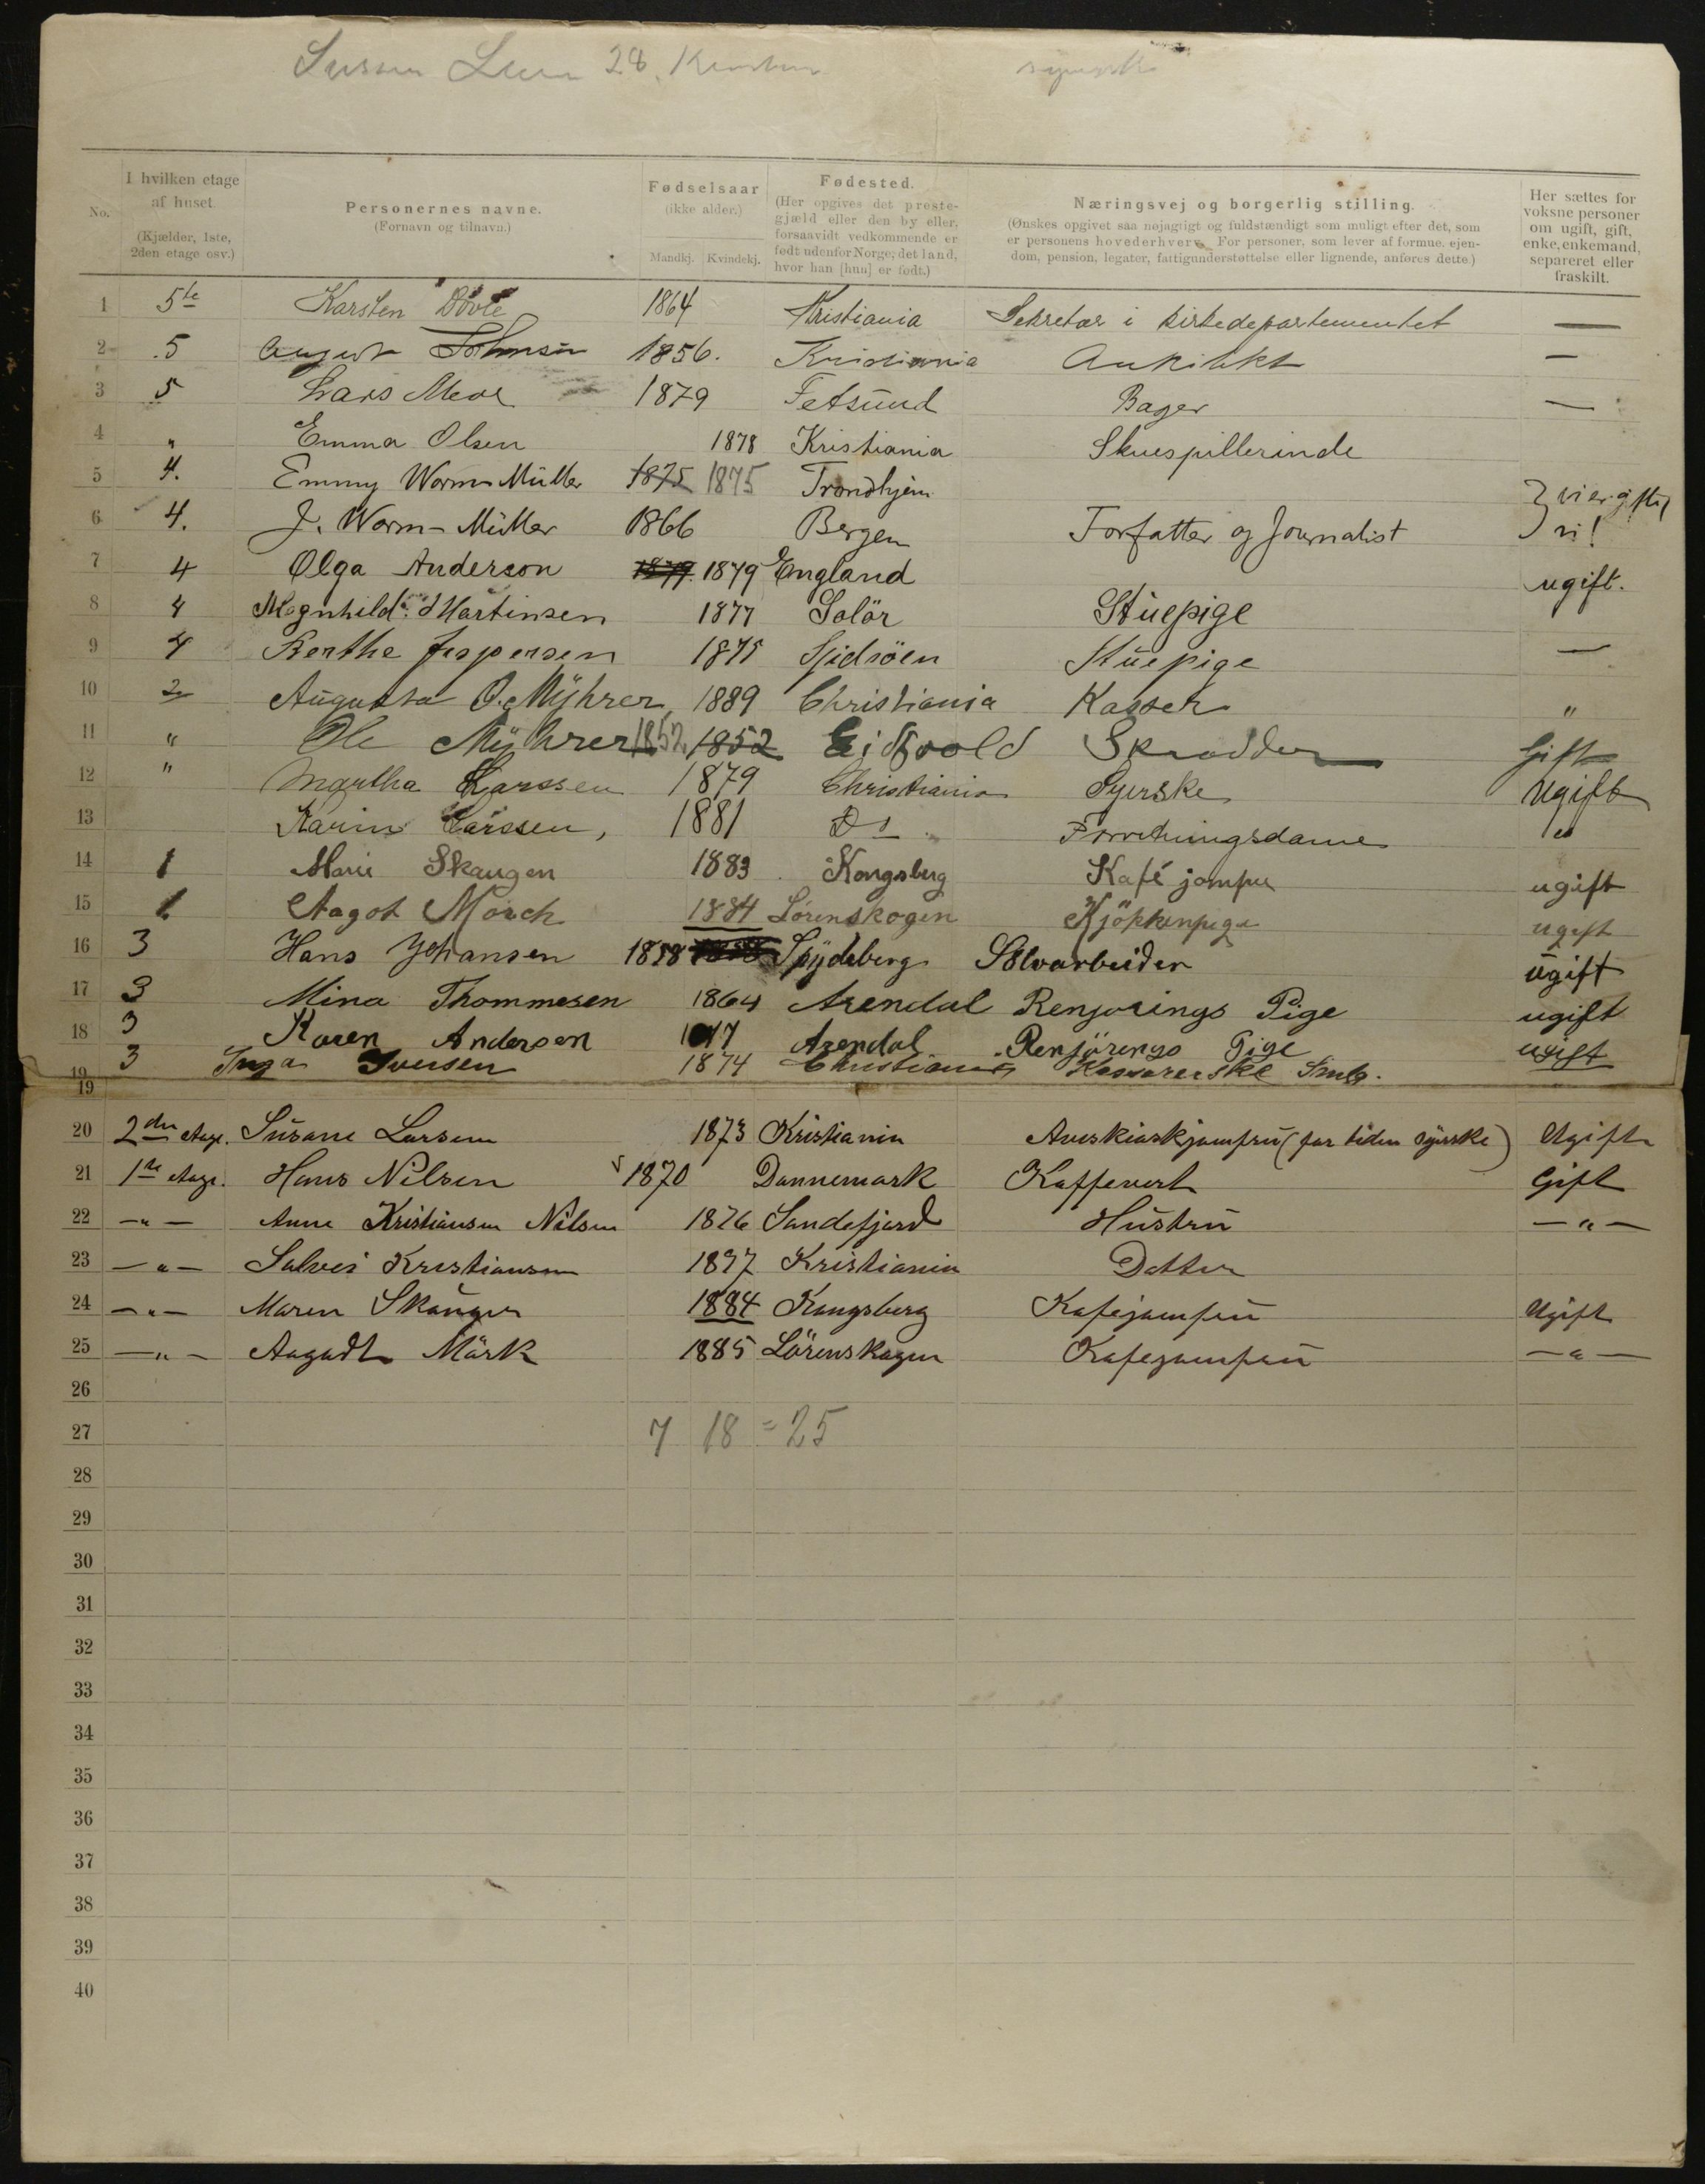 28
I hvilken etage af huset. (Kjælder, 1ste, 2den etage osv.)
No.
Personernes navne. (Fornavn og tilnavn.)
Fødselsaar (ikke alder.) Mandkj. Kvindekj.
Fødested. (Her opgives det prestegjæld eller den by eller, forsaavidt vedkommende er født udenfor Norge, det land, hvor han [hun] er født.)
Næringsvej og borgerlig stilling. (Ønskes opgivet saa nøjagtigt og fuldstændigt som muligt efter det, som er personens hovederhverv. For personer, som lever af formue, ejendom, pension, legater, fattigunderstøttelse eller lignende, anføres dette.)
Her sættes for voksne personer om ugift, gift, enke, enkemand, separeret eller fraskilt.
1 5te Karsten 1864 Kristiania Sekretær i kirkedepartementet —
2 5 August 1856. Kristiania —
3 5 Lars 1879 Fetsund Bager —
4 " Emma Olsen 1878 Kristiania Skuespillerinde
5 4. Emmy Worm-Müller 1875 1875 Trondhjem
6 4. J. Worm-Müller 1866 Bergen Forfatter og Journalist
7 4 Olga Anderson 1879 1879 England ugift.
8 4 Magnhild Martinsen 1877 Solör Stuepige
9 4 Berthe Jespersen 1875 Stuepige —
10 2 Augusta O. Myhrer 1889 Christiania "
11 " Ole Myhrer 1852. 1852 Eidsvold Skrædder Gift
12 " Martha Larssen 1879 Christiania Syerske Ugift
13 Karin Larssen, 1881 Do. Forretningsdame "
14 1 Marie Skaugen 1883 Kongsberg Kafé jomfru ugift
15 1 Aagot Mörch 1884 Lörenskogen Kjökkenpige ugift
16 3 Hans Johansen 1858 Spydeberg Sölvarbeider ugift
17 3 Mina Thommesen 1864 Arendal Renjörings Pige ugift
18 3 Karen Andersen Arendal Renjörings Pige ugift
19 3 Inga Iversen 1874 Christiania
19
20 2den Etage. Susane Larsen 1873 Kristiania (for tiden syerske) Ugift
21 1ste Etage. Hans Nilsen 1870 Dannemark Kaffevert Gift
22 —"— Anne Kristiansen Nilsen 1876 Sandefjord Hustru —"—
23 —"— Solvei Kristiansen 1897 Kristiania Datter
24 —"— Maren Skaugen 1884 Kongsberg Kafejomfru Ugift
25 —"— Aagodt Mörk 1885 Lörenskogen Kafejomfru —"—
26
27 7 18 = 25
28
29
30
31
32
33
34
35
36
37
38
39
40